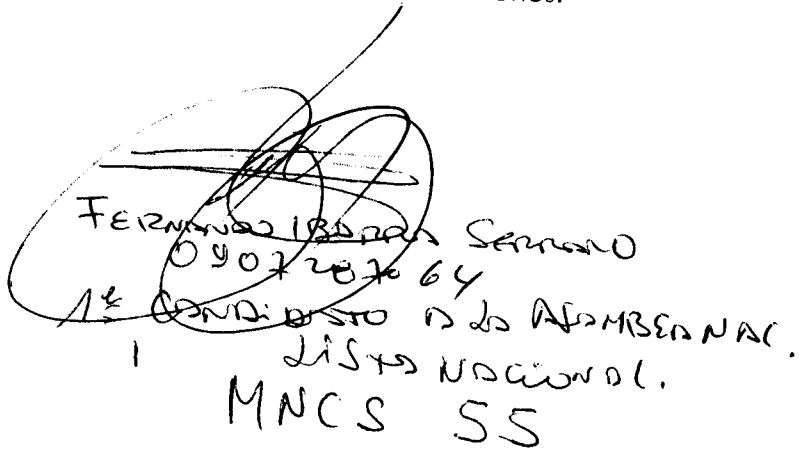 FERNANDO IBARRA SERRANO
0907207064
1er CANDIDATO A LA ASAMBLEA NAC.
LISTA NACIONAL.
MNCS 55